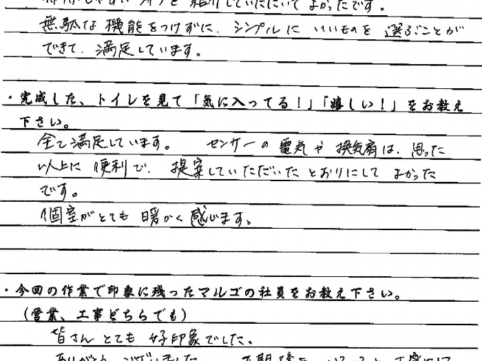 していただいて よかったです。
無駄な機能をつけずに、シンプルに いいものを 選ぶことが
できて、満足しています。
・完成した、トイレを見て「気に入ってる!」「嬉しい!」をお教え
下さい。
全て満足しています。 センサーの電気や換気扇は、思った
以上に便利で、提案していただいたとおりにして よかった
です。
個室がとても 暖かく感じます。
・今回の作業で印象に残ったマルゴの社員をお教え下さい。
(営業、工事どちらでも)
皆さん とても 好印象でした。